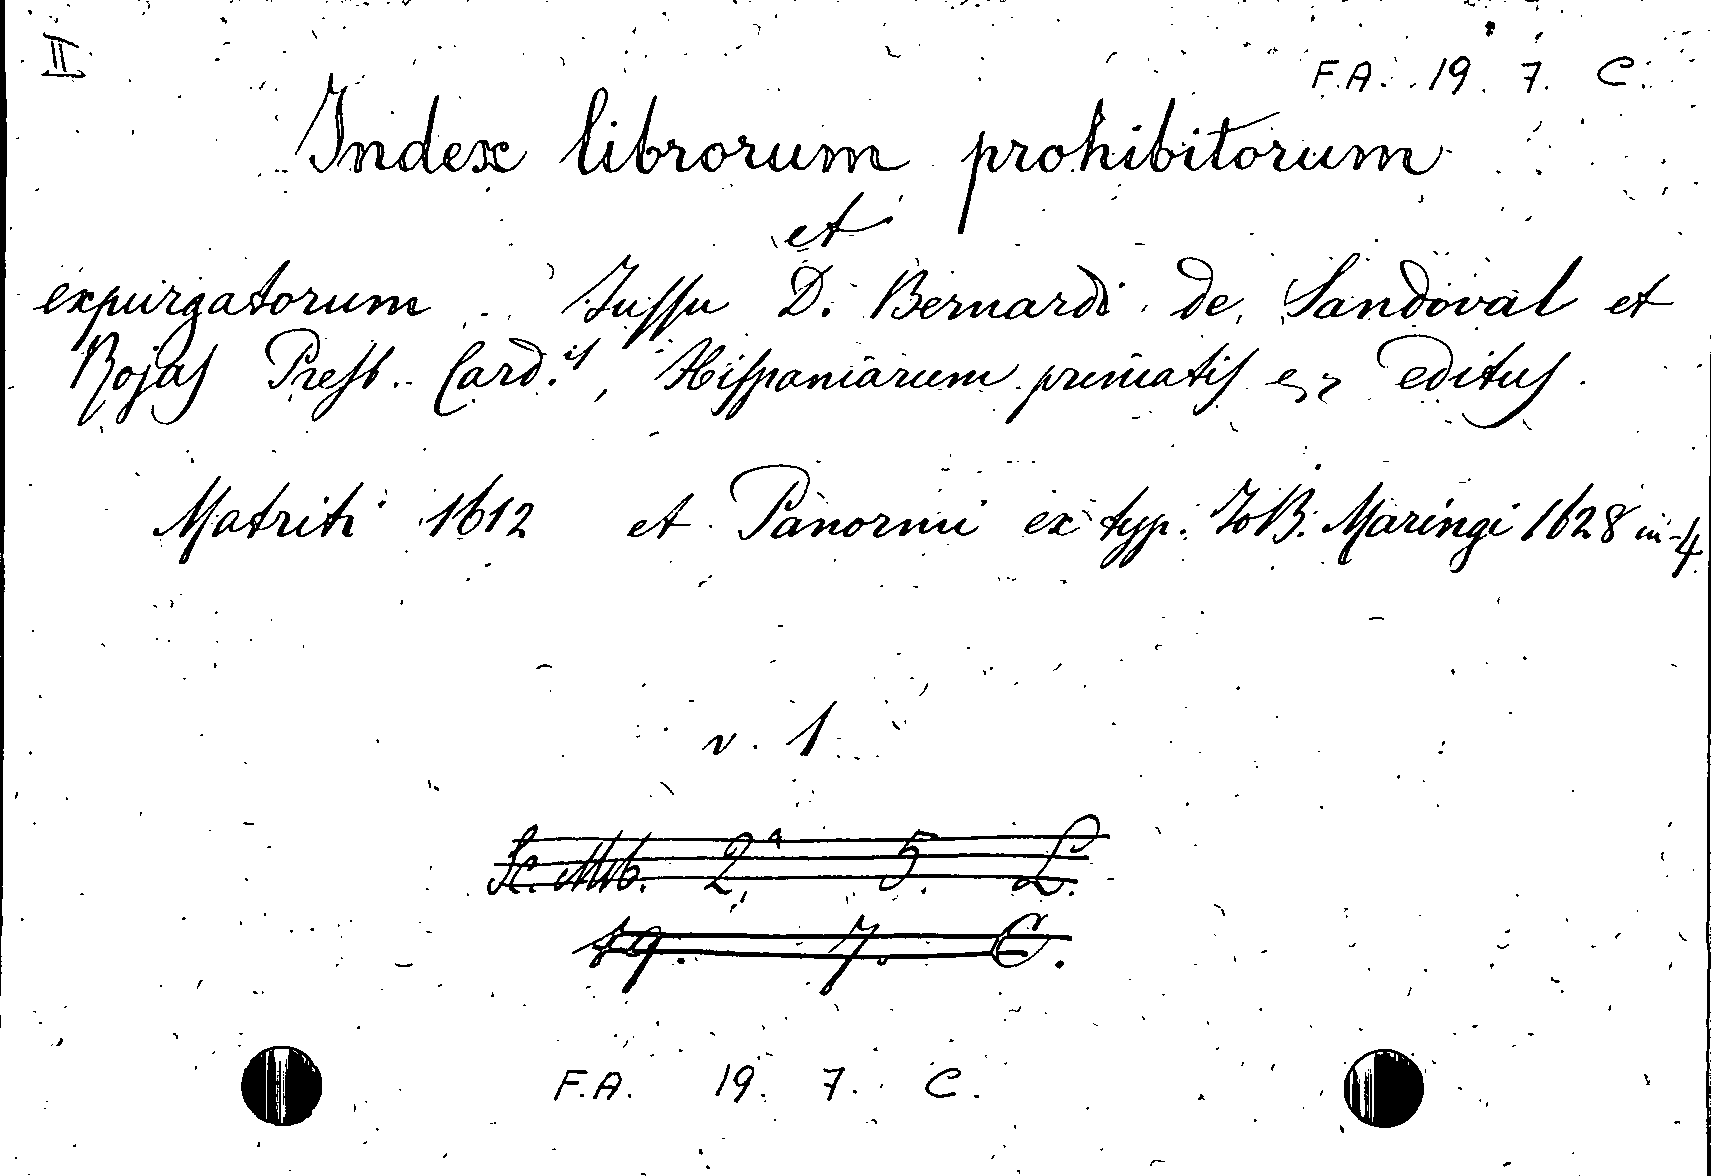 II
F.A. 19. 7. C.
Index librorum prohibitorum
et
expurgatorum .. Jussu D. Bernardi de Sandoval et
Rojas Presb. Card.is, Hispaniarum primatis editus.
Matriti 1612 et Panormi ex typ. Jo B. Maringi 1628 in-4
v. 1
2a 5. L.
19. 7. C.
F.A. 19. 7. C.